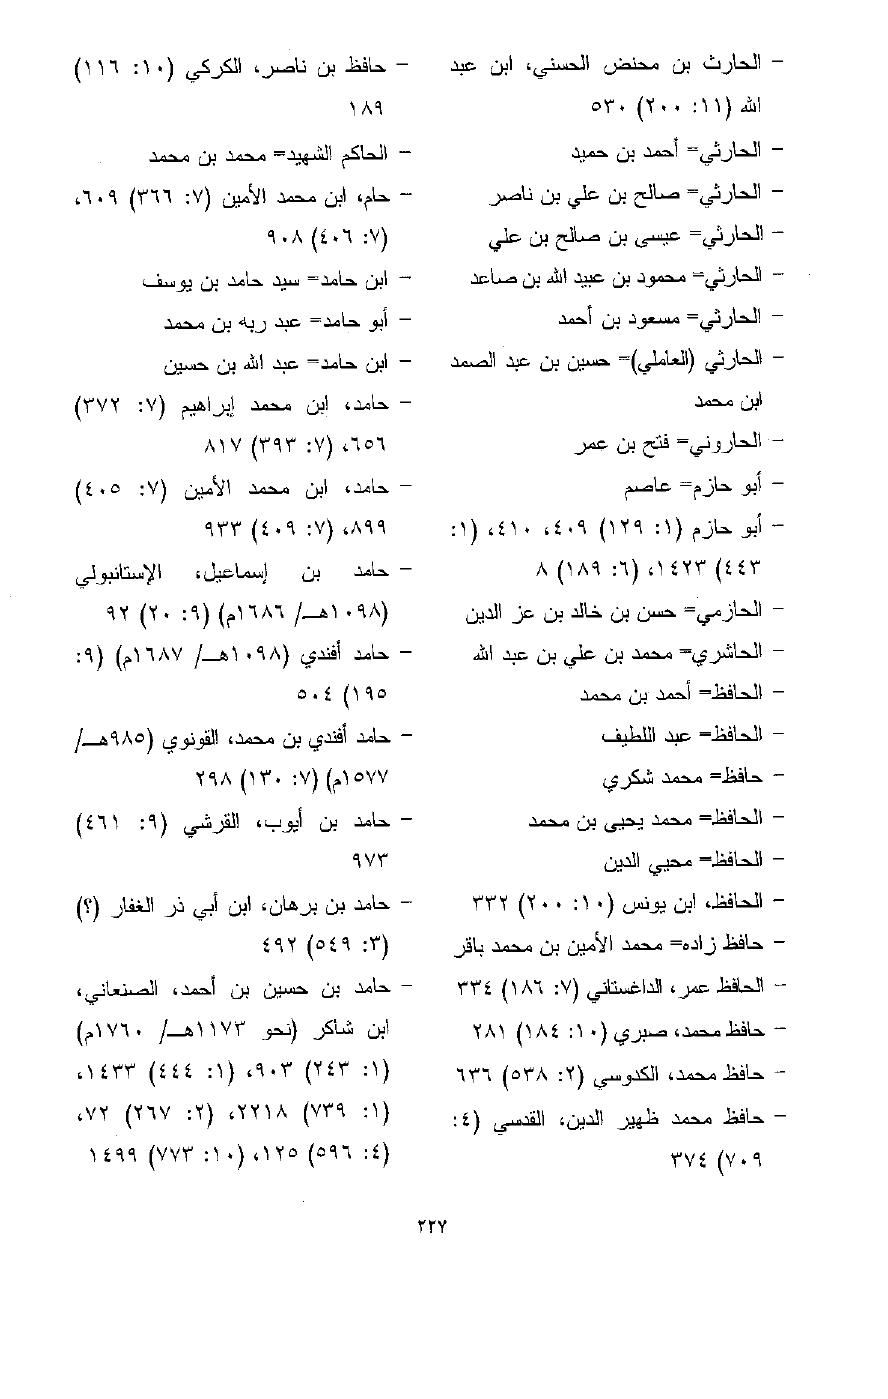 - الحارث بن محنض الحسني، ابن عبد
الله (١١: ٢٠٠) ٥٣٠
- الحارثي= أحمد بن حميد
- الحارثي= صالح بن علي بن ناصر
- الحارثي= عيسى بن صالح بن علي
- الحارثي= محمود بن عبيد الله بن صاعد
- الحارثي= مسعود بن أحمد
- الحارثي (العاملي)= حسين بن عبد الصمد
ابن محمد
- الحاروني= فتح بن عمر
- أبو حازم= عاصم
- أبو حازم (١: ١٢٩) ٤٠٩، ٤١٠، (١:
٤٤٣) ١٤٢٣، (٦: ١٨٩) ٨
- الحازمي= حسن بن خالد بن عز الدين
- الحاشري= محمد بن علي بن عبد الله
- الحافظ= أحمد بن محمد
- الحافظ= عبد اللطيف
- حافظ= محمد شكري
- الحافظ= محمد يحيى بن محمد
- الحافظ= محيي الدين
- الحافظ، ابن يونس (١٠: ٢٠٠) ٣٣٢
- حافظ زاده= محمد الأمين بن محمد باقر
- الحافظ عمر، الداغستاني (٧: ١٨٦) ٣٣٤
- حافظ محمد، صبري (١٠: ١٨٤) ٢٨١
- حافظ محمد، الكدوسي (٢: ٥٣٨) ٦٣٦
- حافظ محمد ظهير الدين، القدسي (٤:
٧٠٩) ٣٧٤
- حافظ بن ناصر، الكركي (١٠: ١١٦)
١٨٩
- الحاكم الشهيد= محمد بن محمد
- حام، ابن محمد الأمين (٧: ٣٦٦) ٦٠٩،
(٧: ٤٠٦) ٩٠٨
- ابن حامد= سيد حامد بن يوسف
- أبو حامد= عبد ربه بن محمد
- ابن حامد= عبد الله بن حسين
- حامد، ابن محمد إبراهيم (٧: ٣٧٢)
٦٥٦، (٧: ٣٩٣) ٨١٧
- حامد، ابن محمد الأمين (٧: ٤٠٥)
٨٩٩، (٧: ٤٠٩) ٩٣٣
- حامد بن إسماعيل، الإستانبولي
(١٠٩٨هـ/ ١٦٨٦م) (٩: ٢٠) ٩٢
- حامد أفندي (١٠٩٨هـ/ ١٦٨٧م) (٩:
١٩٥) ٥٠٤
- حامد أفندي بن محمد، القونوي (٩٨٥هـ/
١٥٧٧م) (٧: ١٣٠) ٢٩٨
- حامد بن أيوب، القرشي (٩: ٤٦١)
٩٧٣
- حامد بن برهان، ابن أبي ذر الغفار (؟)
(٣: ٥٤٩) ٤٩٢
- حامد بن حسين بن أحمد، الصنعاني،
ابن شاكر (نحو ١١٧٣هـ/ ١٧٦٠م)
(١: ٢٤٣) ٩٠٣، (١: ٤٤٤) ١٤٣٣،
(١: ٧٣٩) ٢٢١٨، (٢: ٢٦٧) ٧٢،
(٤: ٥٩٦) ١٢٥، (١٠: ٧٧٣) ١٤٩٩
٢٢٧